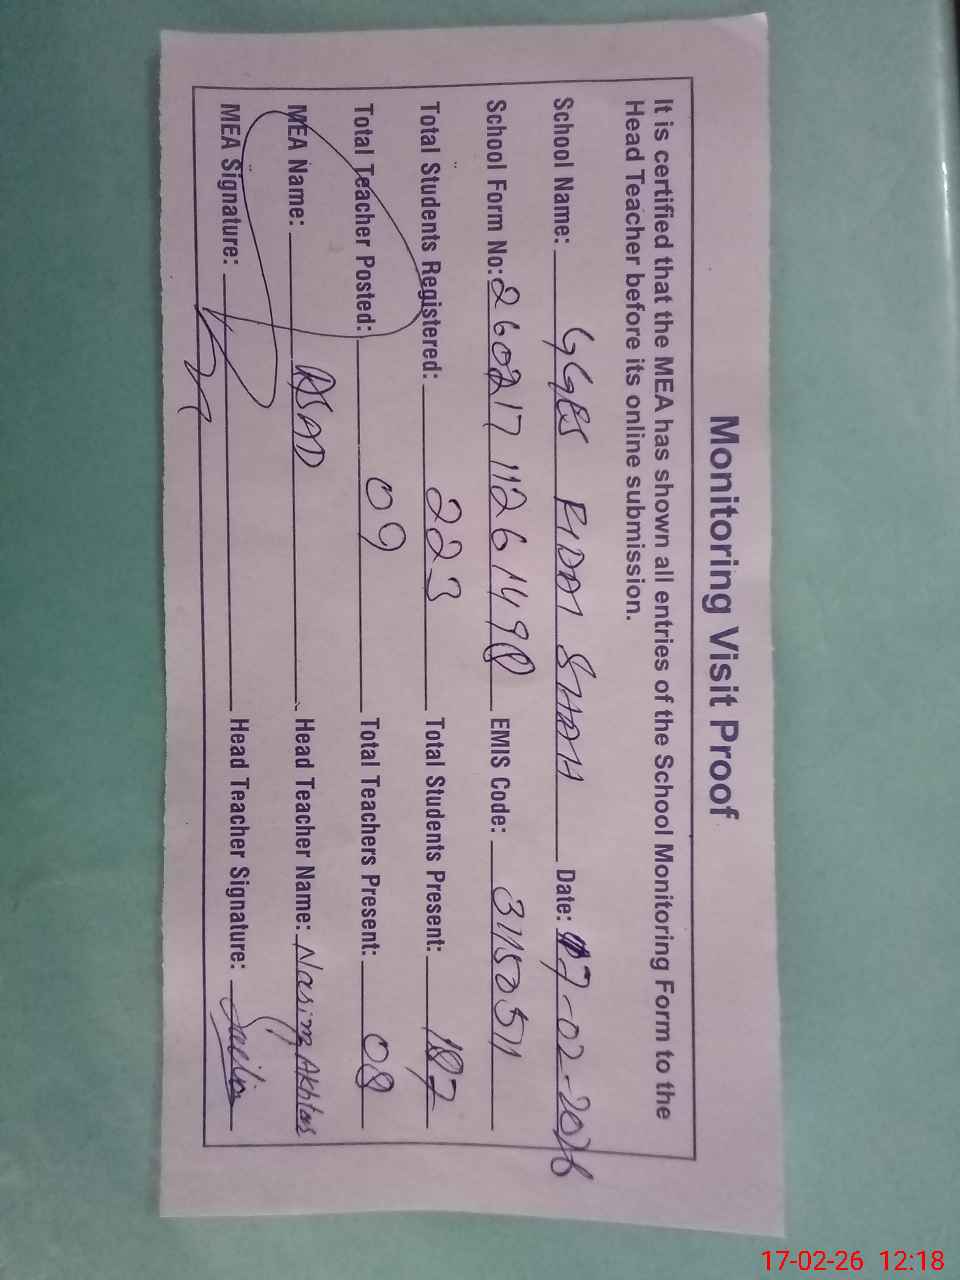 Monitoring Visit Proof
It is certified that the MEA has shown all entries of the School Monitoring Form to the
Head Teacher before its online submission.
School Name: GGES PIDDI SHAH Date: 17-02-2026
School Form No: 260217 1126149 EMIS Code:
Total Students Registered: 223 Total Students Present: 187
Total Teacher Posted: 09 Total Teachers Present: 08
MEA Name: ASAD Head Teacher Name: Nasim Akhtar
MEA Signature: Head Teacher Signature:
17-02-26 12:18